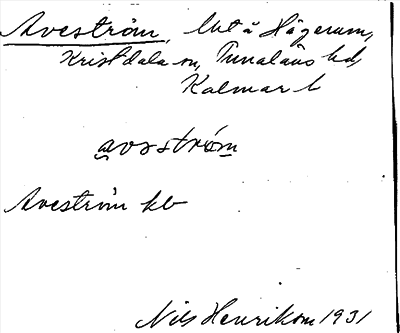 Aveström, lht å Hägerum,
Kristdala sn, Tunaläns hd,
Kalmar l
avsström
Aveström kb
Nils Henrikson 1931